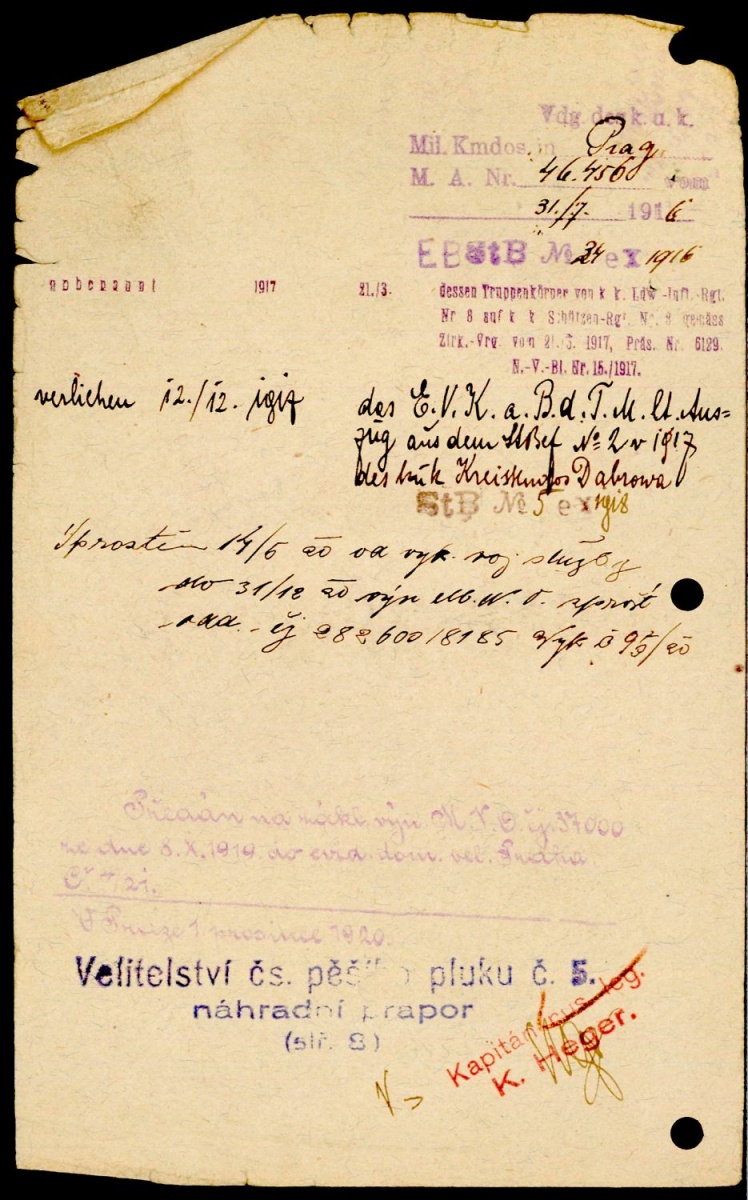 Vdg. des k. u. k.
Mil. Kmdos. in Prag
M. A. Nr. 46.456 vom
31./7. 1916
EB StB № 34 ex 1916
umbenannt 1917 21./3. dessen Truppenkörper von k. k. Ldw.-Inft.-Rgt.
Nr 8 auf k. k. Schützen-Rgt. Nr. 8 gemäss
Zirk.-Vrg. vom 21. 3. 1917, Präs. Nr. 6129.
N.-V.-Bl. Nr. 15./1917.
verliehen 12./12. 1917 das E. V. K. a. B. d. T. M. lt. Aus=
zug aus dem StBef № 2 v 1917
des kuk Kreiskmdos Dąbrowa
StB № 5 ex 1918
Sproštěn 14/5 20 od vyk. voj služby
do 31/12 20 výn M. N. O.
čj 282600/8185
Předán na zákl. výn M. N. O. čj. 37000
ze dne 8. X. 1919. do evid. dom. vel. Praha
V Praze 1 prosince 1920.
Velitelství čs. pěšího pluku č. 5.
náhradní prapor
(stř. 8)
Kapitán rus. leg.
K. Heger.